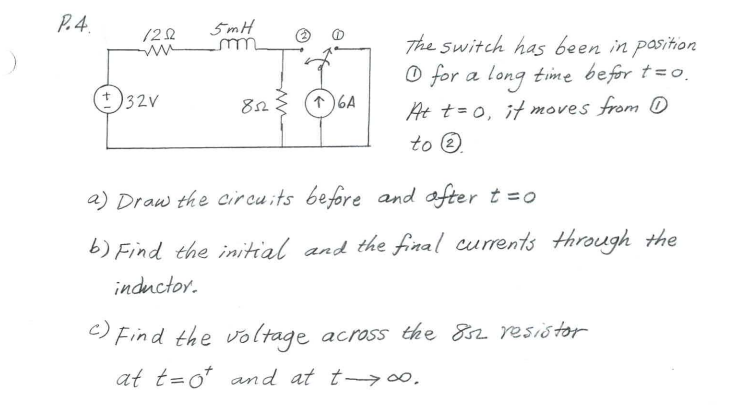 P.4.
12Ω 5mH ② ①
+ - 32V 8Ω ↑ 6A
The switch has been in position
① for a long time befor t=0.
At t=0, it moves from ①
to ②.
a) Draw the circuits before and after t=0
b) Find the initial and the final currents through the
inductor.
c) Find the voltage across the 8Ω resistor
at t=0⁺ and at t→∞.